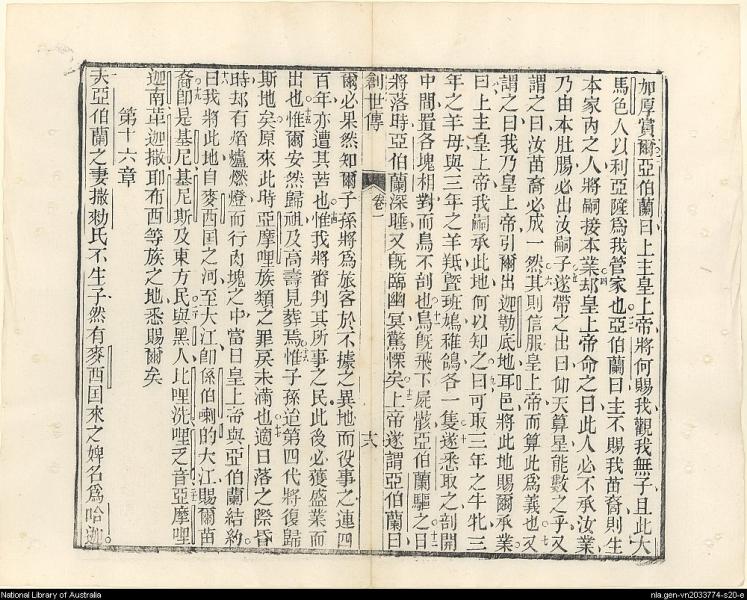 加厚賞爾亞伯蘭曰上主皇上帝將何賜我觀我無子且此大
馬色人以利亞薩爲我管家也亞伯蘭曰主不賜我苗裔則生
本家內之人將嗣接本業却皇上帝命之曰此人必不承汝業
乃由本肚腸必出汝嗣子遂帶之出曰仰天算星能數之乎又
謂之曰汝苗裔必成一然其則信服皇上帝而算此爲義也又
謂之曰我乃皇上帝引爾出迦勒底地耳邑將此地賜爾承業
曰上主皇上帝我嗣承此地何以知之曰可取三年之牛牝三
年之羊母與三年之羊羝曁班鳩稚鴿各一隻遂悉取之剖開
中間置各塊相對而鳥不剖也鳥旣飛下屍骸亞伯蘭驅之日
將落時亞伯蘭深睡又旣臨幽冥驚慄矣上帝遂謂亞伯蘭曰
創世傳 卷一
爾必果然知爾子孫將爲旅客於不據之異地而役事之連四
百年亦遭其苦也惟我將審判其所事之民此後必獲盛業而
出也惟爾安然歸祖及高壽見葬焉惟子孫迨第四代將復歸
斯地矣原來此時亞摩哩族類之罪戾未滿也適日落之際昏
時却有熖爐燃燈而行肉塊之中當日皇上帝與亞伯蘭結約
曰我將此地自麥西国之河至大江卽係伯喇的大江賜爾苗
裔卽是基尼基尼斯及東方民與黑人比哩洗哩乏音亞摩哩
迦南革迦撒耶布西等族之地悉賜爾矣
第十六章
夫亞伯蘭之妻撒𠡠氏不生子然有麥西国來之婢名爲哈迦